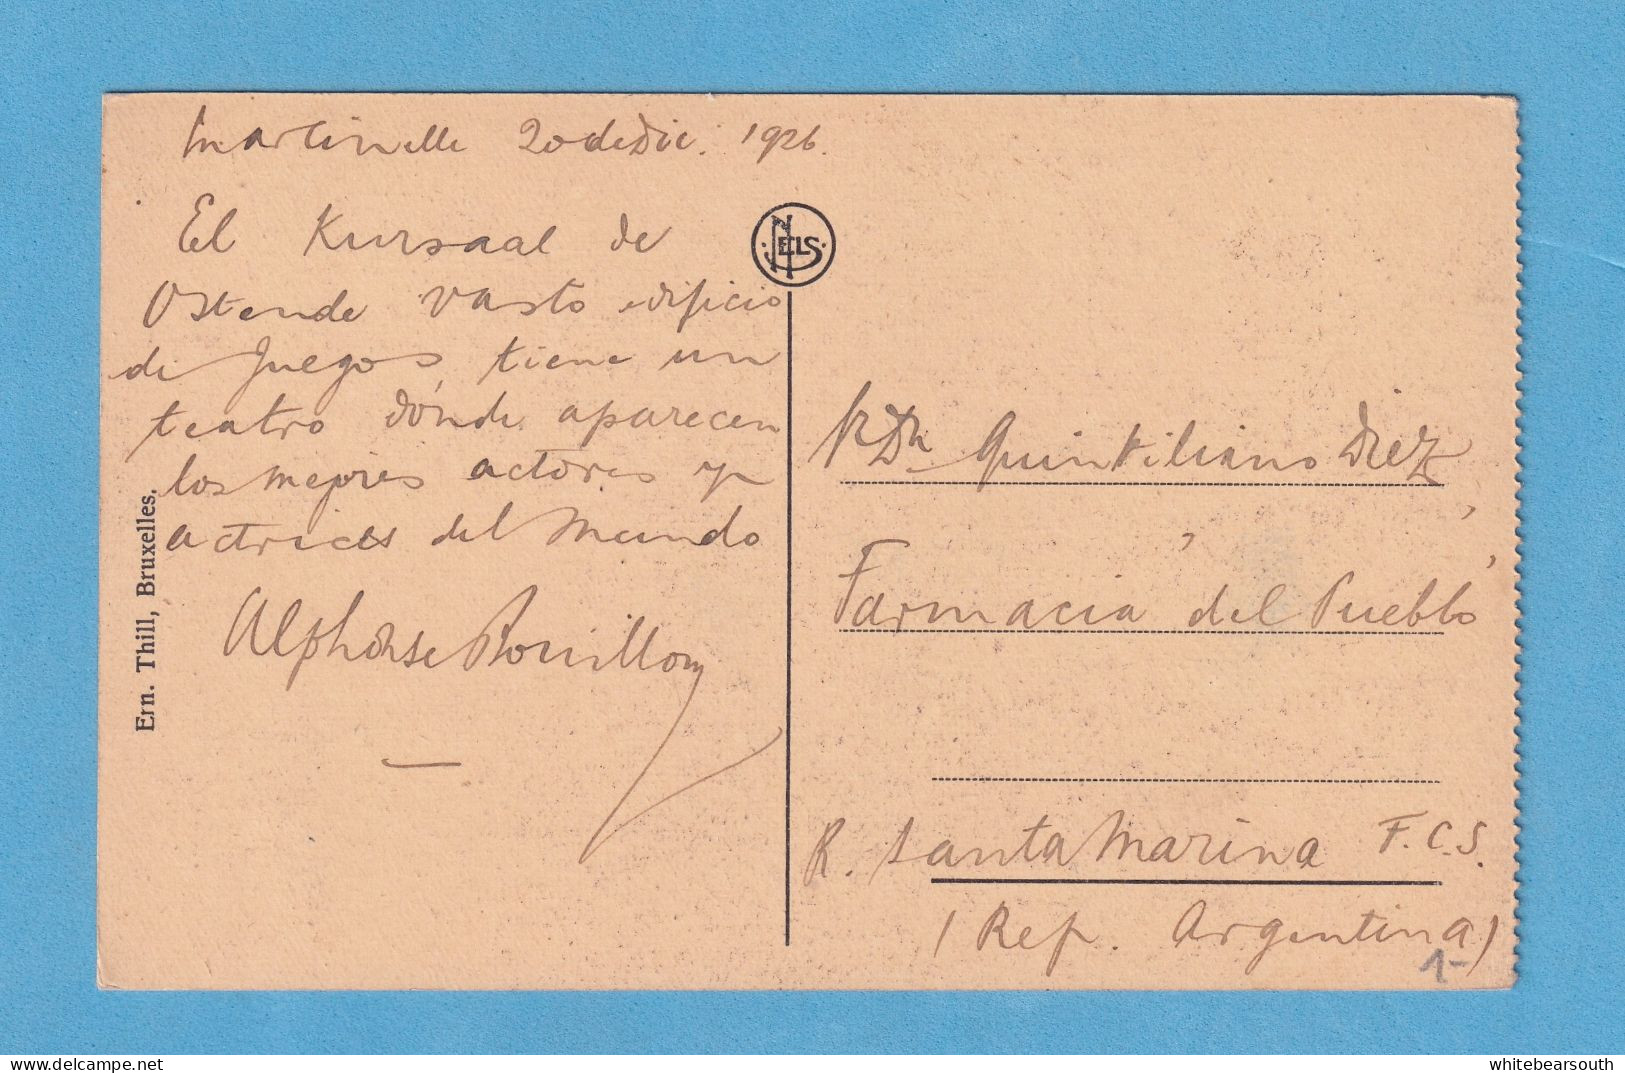 Marcinelle 20 de Dic. 1926.
El Kursaal de
Ostende vasto edificio
de Juegos tiene un
teatro dónde aparecen
los mejores actores y
actrices del Mundo
Alphonse Bouillon
Ern. Thill, Bruxelles.
NELS
Quintiliano Diez
Farmacia del Pueblo
R. Santa Marina F.C.S.
(Rep. Argentina)
1-
whitebearsouth